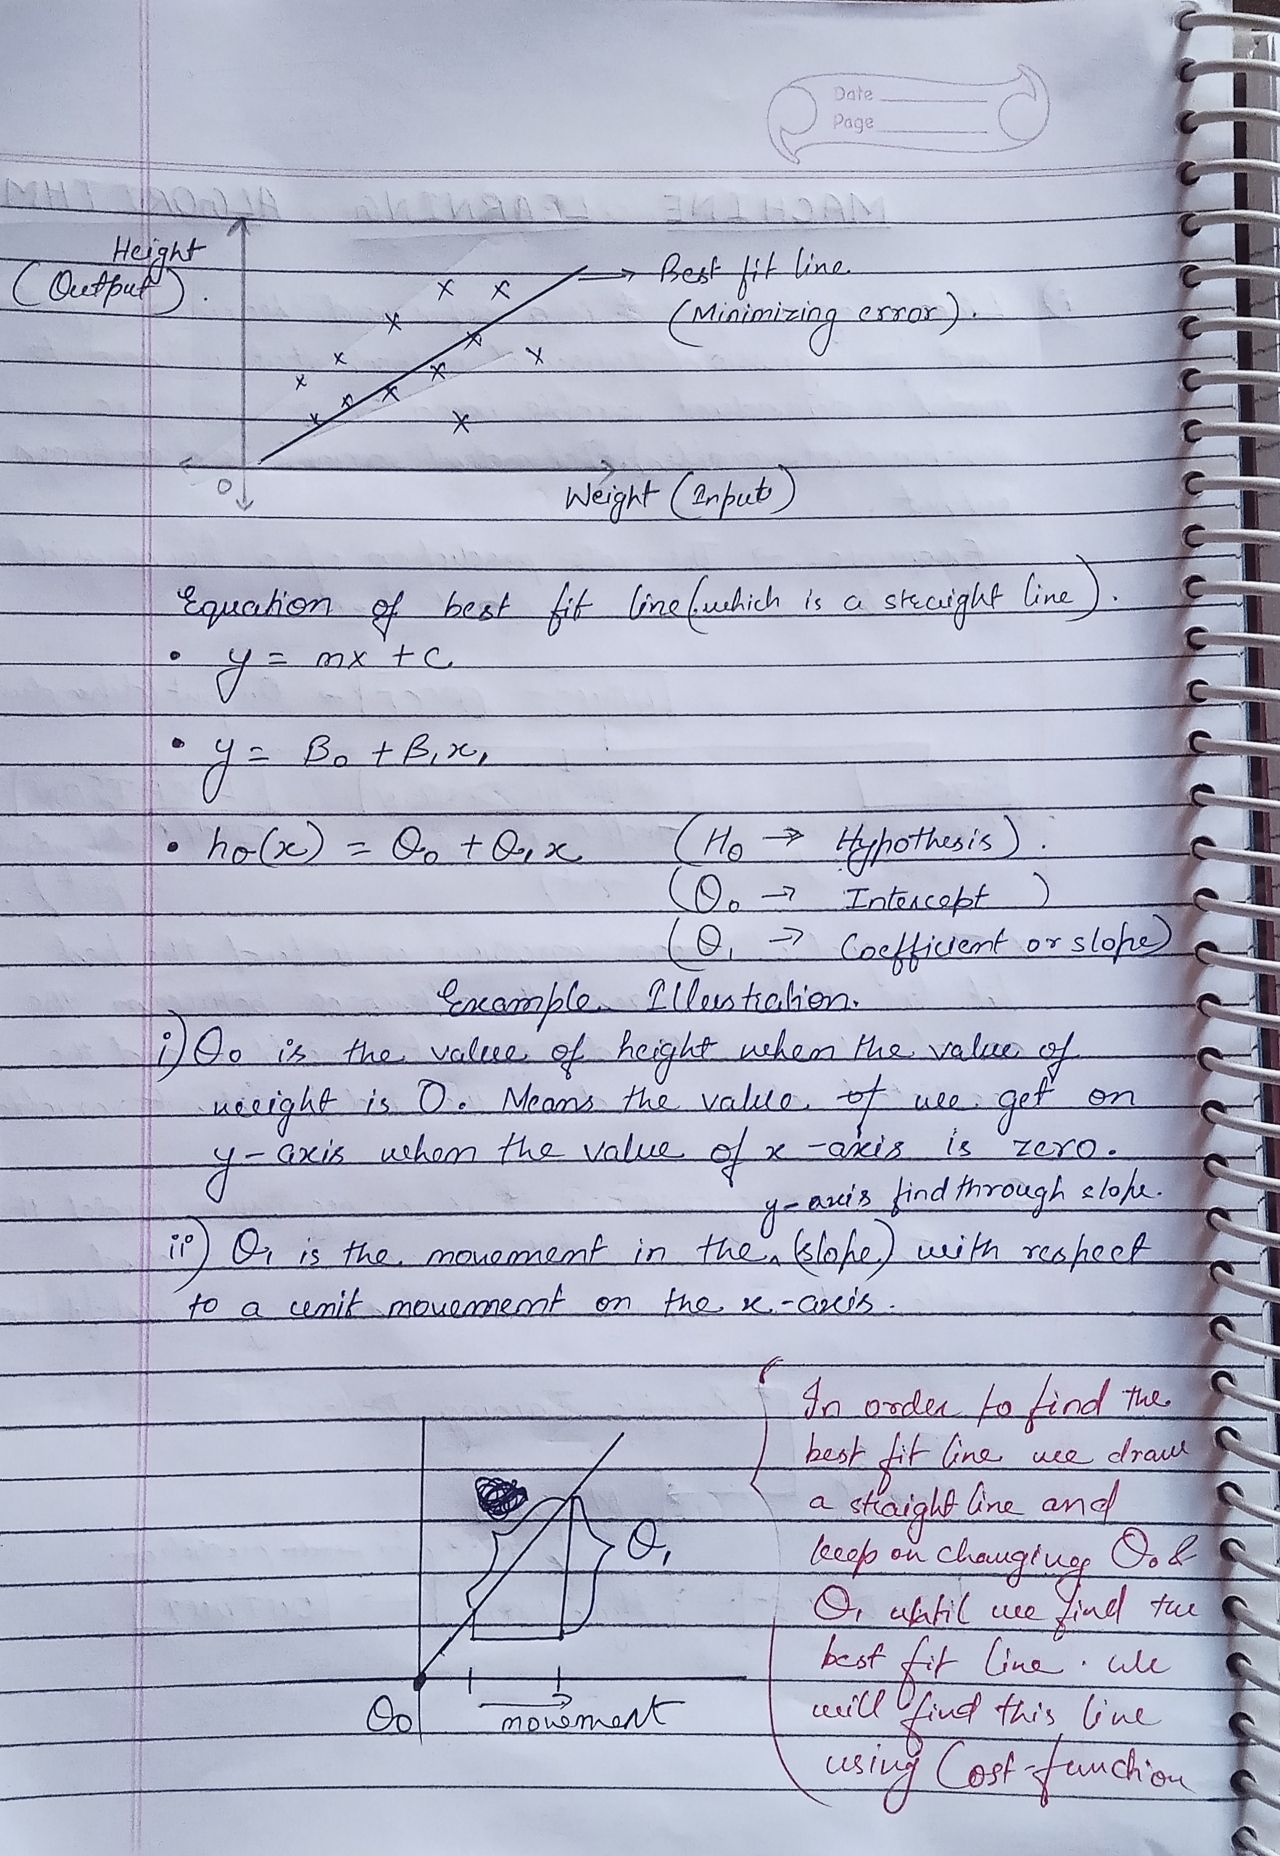 Date
Page
Height
(Output).
Best fit line
(Minimizing error).
0
Weight (Input)
Equation of best fit line (which is a straight line).
• y = mx + c
• y = β₀ + β₁x₁
• hθ(x) = θ₀ + θ₁x (Hθ → Hypothesis).
(θ₀ → Intercept)
(θ₁ → Coefficient or slope)
Example Illustration.
i) θ₀ is the value of height when the value of
weight is 0. Means the value of we get on
y-axis when the value of x-axis is zero.
y-axis find through slope.
ii) θ₁ is the movement in the ^ (slope) with respect
to a unit movement on the x-axis.
θ₁
θ₀
movement
In order to find the
best fit line we draw
a straight line and
keep on changing θ₀ &
θ₁ until we find the
best fit line. We
will find this line
using Cost-function